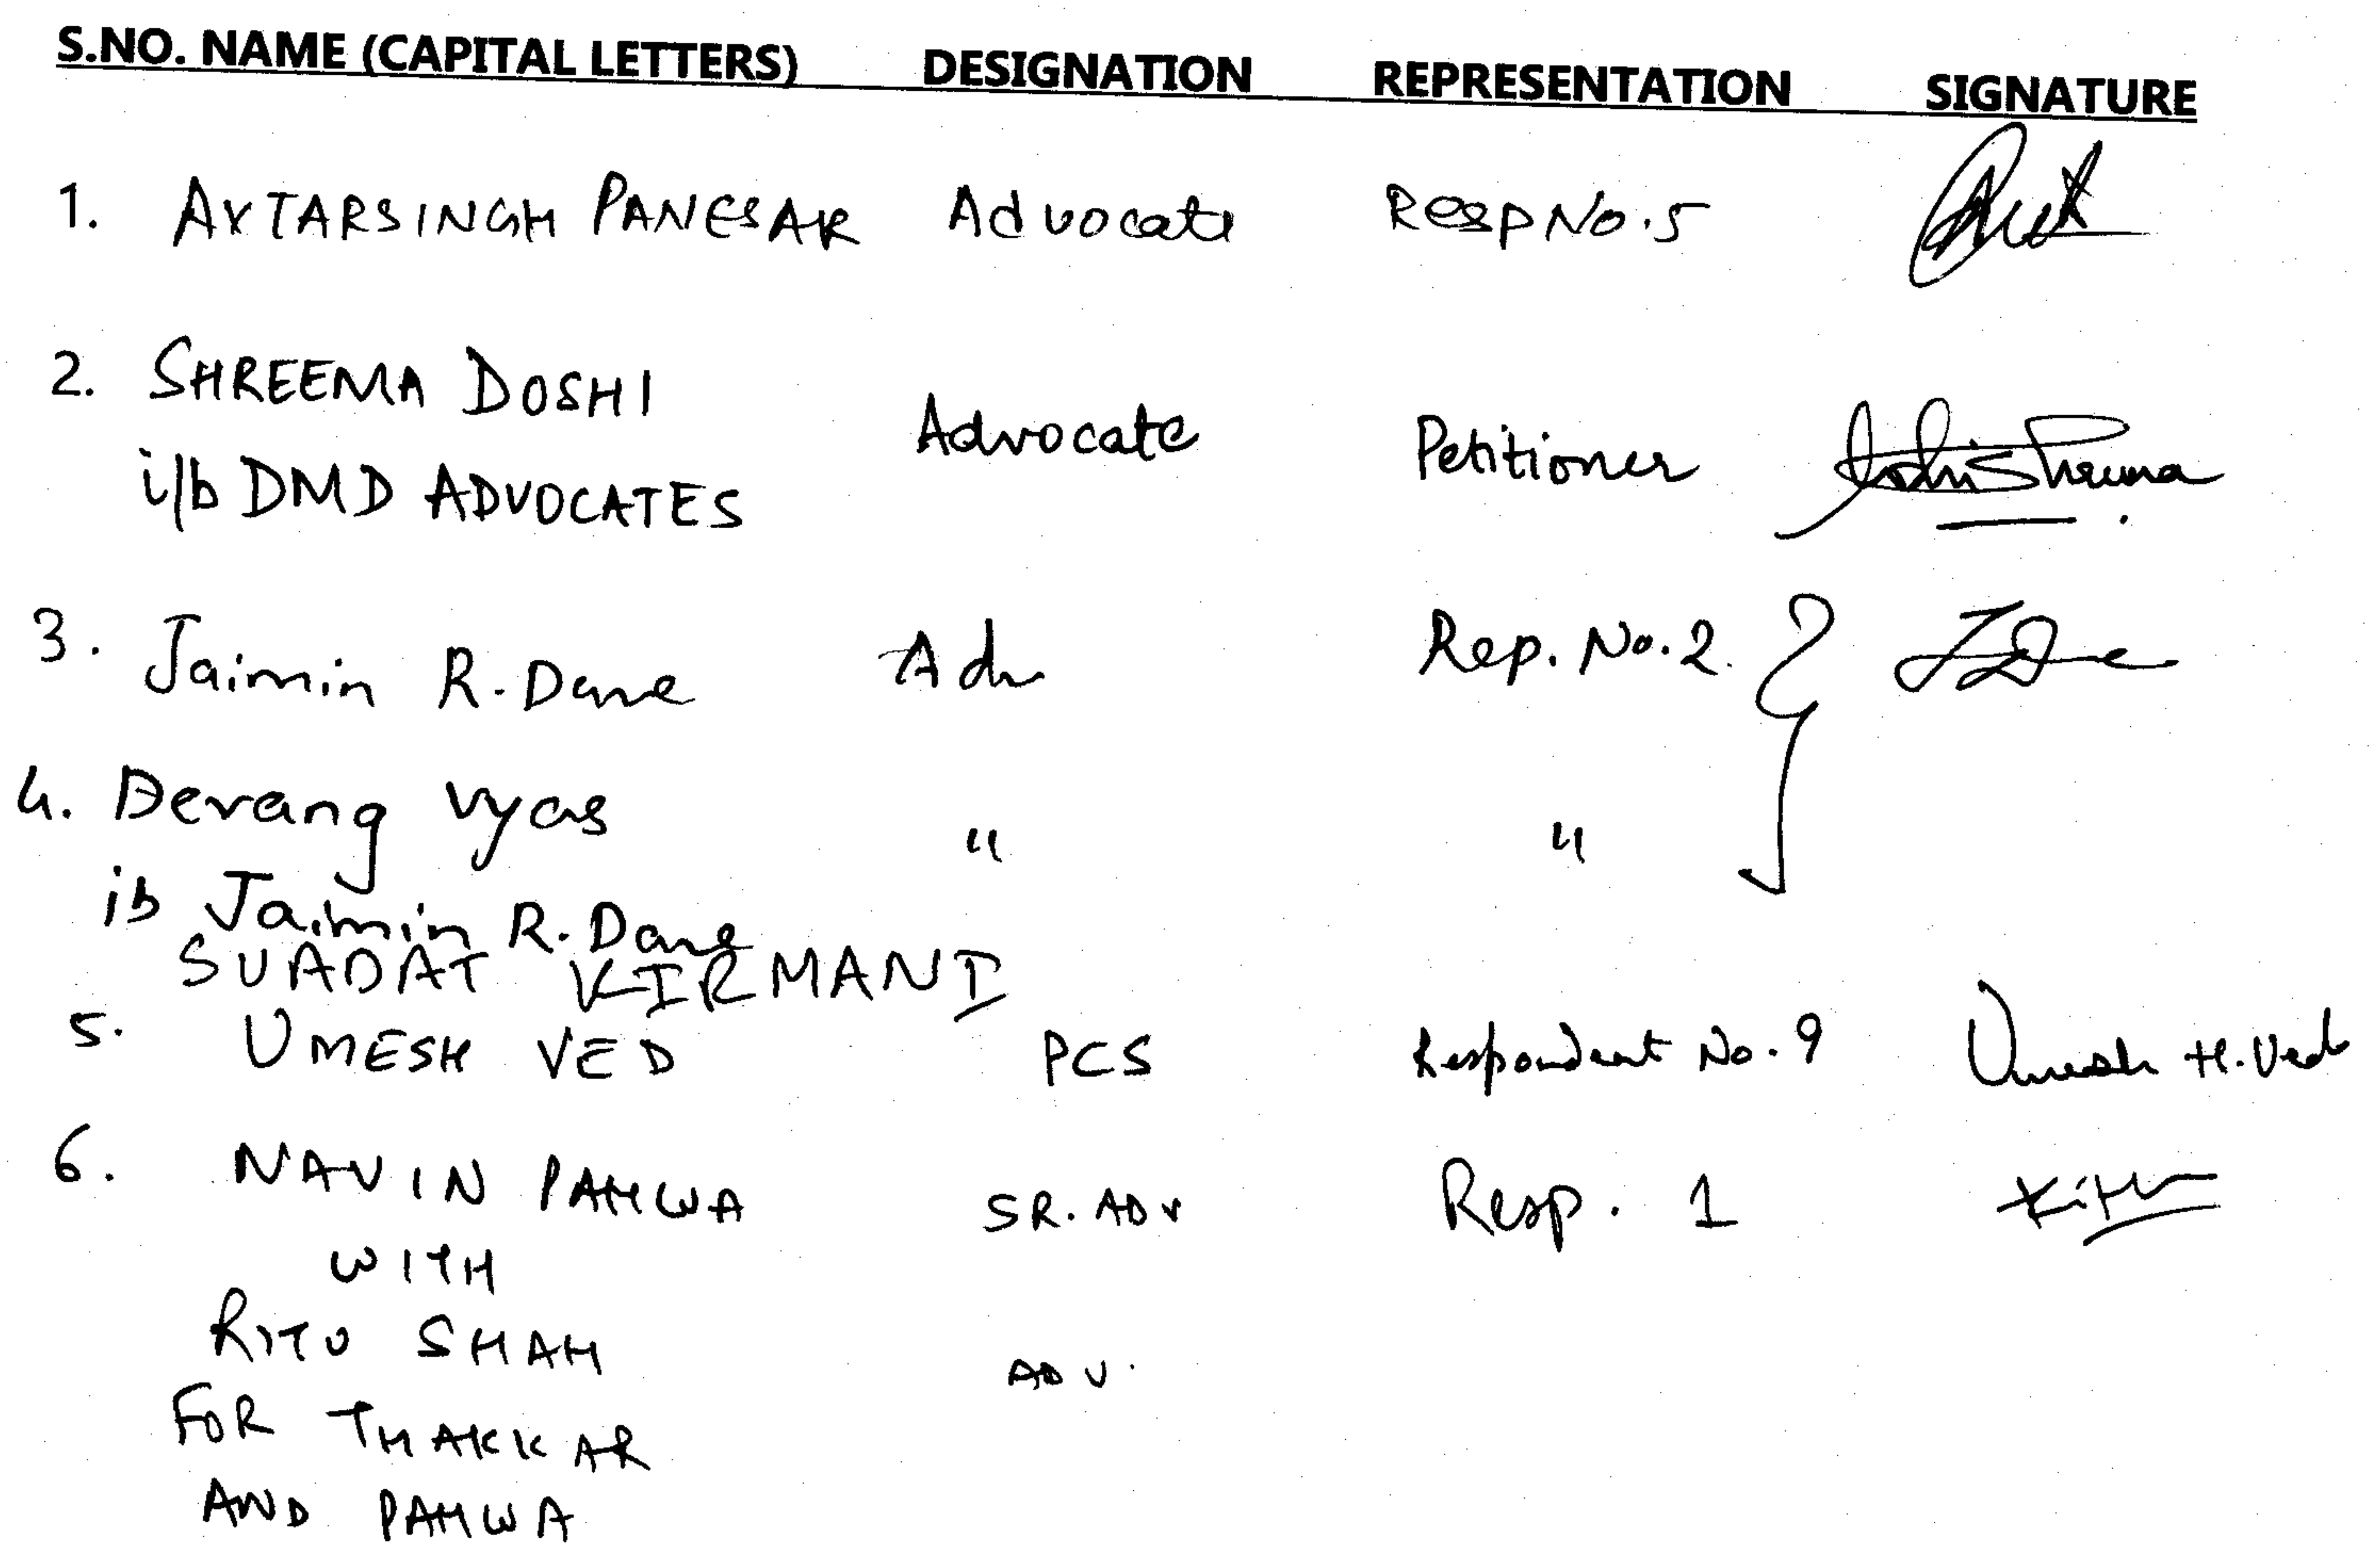 S.NO. NAME (CAPITAL LETTERS) DESIGNATION REPRESENTATION SIGNATURE
1. AVTARSINGH PANESAR Advocate RESP NO. 5
2. SHREEMA DOSHI
i/b DMD ADVOCATES Advocate Petitioner Doshi Shreema
3. Jaimin R. Dave Adv Rep. No. 2. JDave
4. Devang Vyas " "
ib Jaimin R. Dave
SUADAT KIRMANI
5. UMESH VED PCS Respondent No. 9 Umesh H. Ved
6. NAVIN PAHWA SR. ADV Resp. 1
WITH
RITU SHAH ADV.
FOR THAKKAR
AND PAHWA